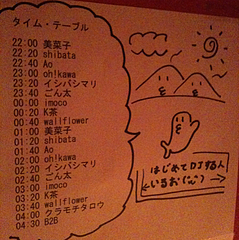 タイム・テーブル
22:00 美菜子
22:20 shibata
22:40 Ao
23:00 oh!kawa
23:20 イシバシマリ
23:40 ごん太
00:00 imoco
00:20 K茶
00:40 wallflower
01:00 美菜子
01:20 shibata
01:40 Ao
02:00 oh!kawa
02:20 イシバシマリ
02:40 ごん太
03:00 imoco
03:20 K茶
03:40 wallflower
04:00 クラモチタロウ
04:30 B2B
はじめてDJする人
いるお